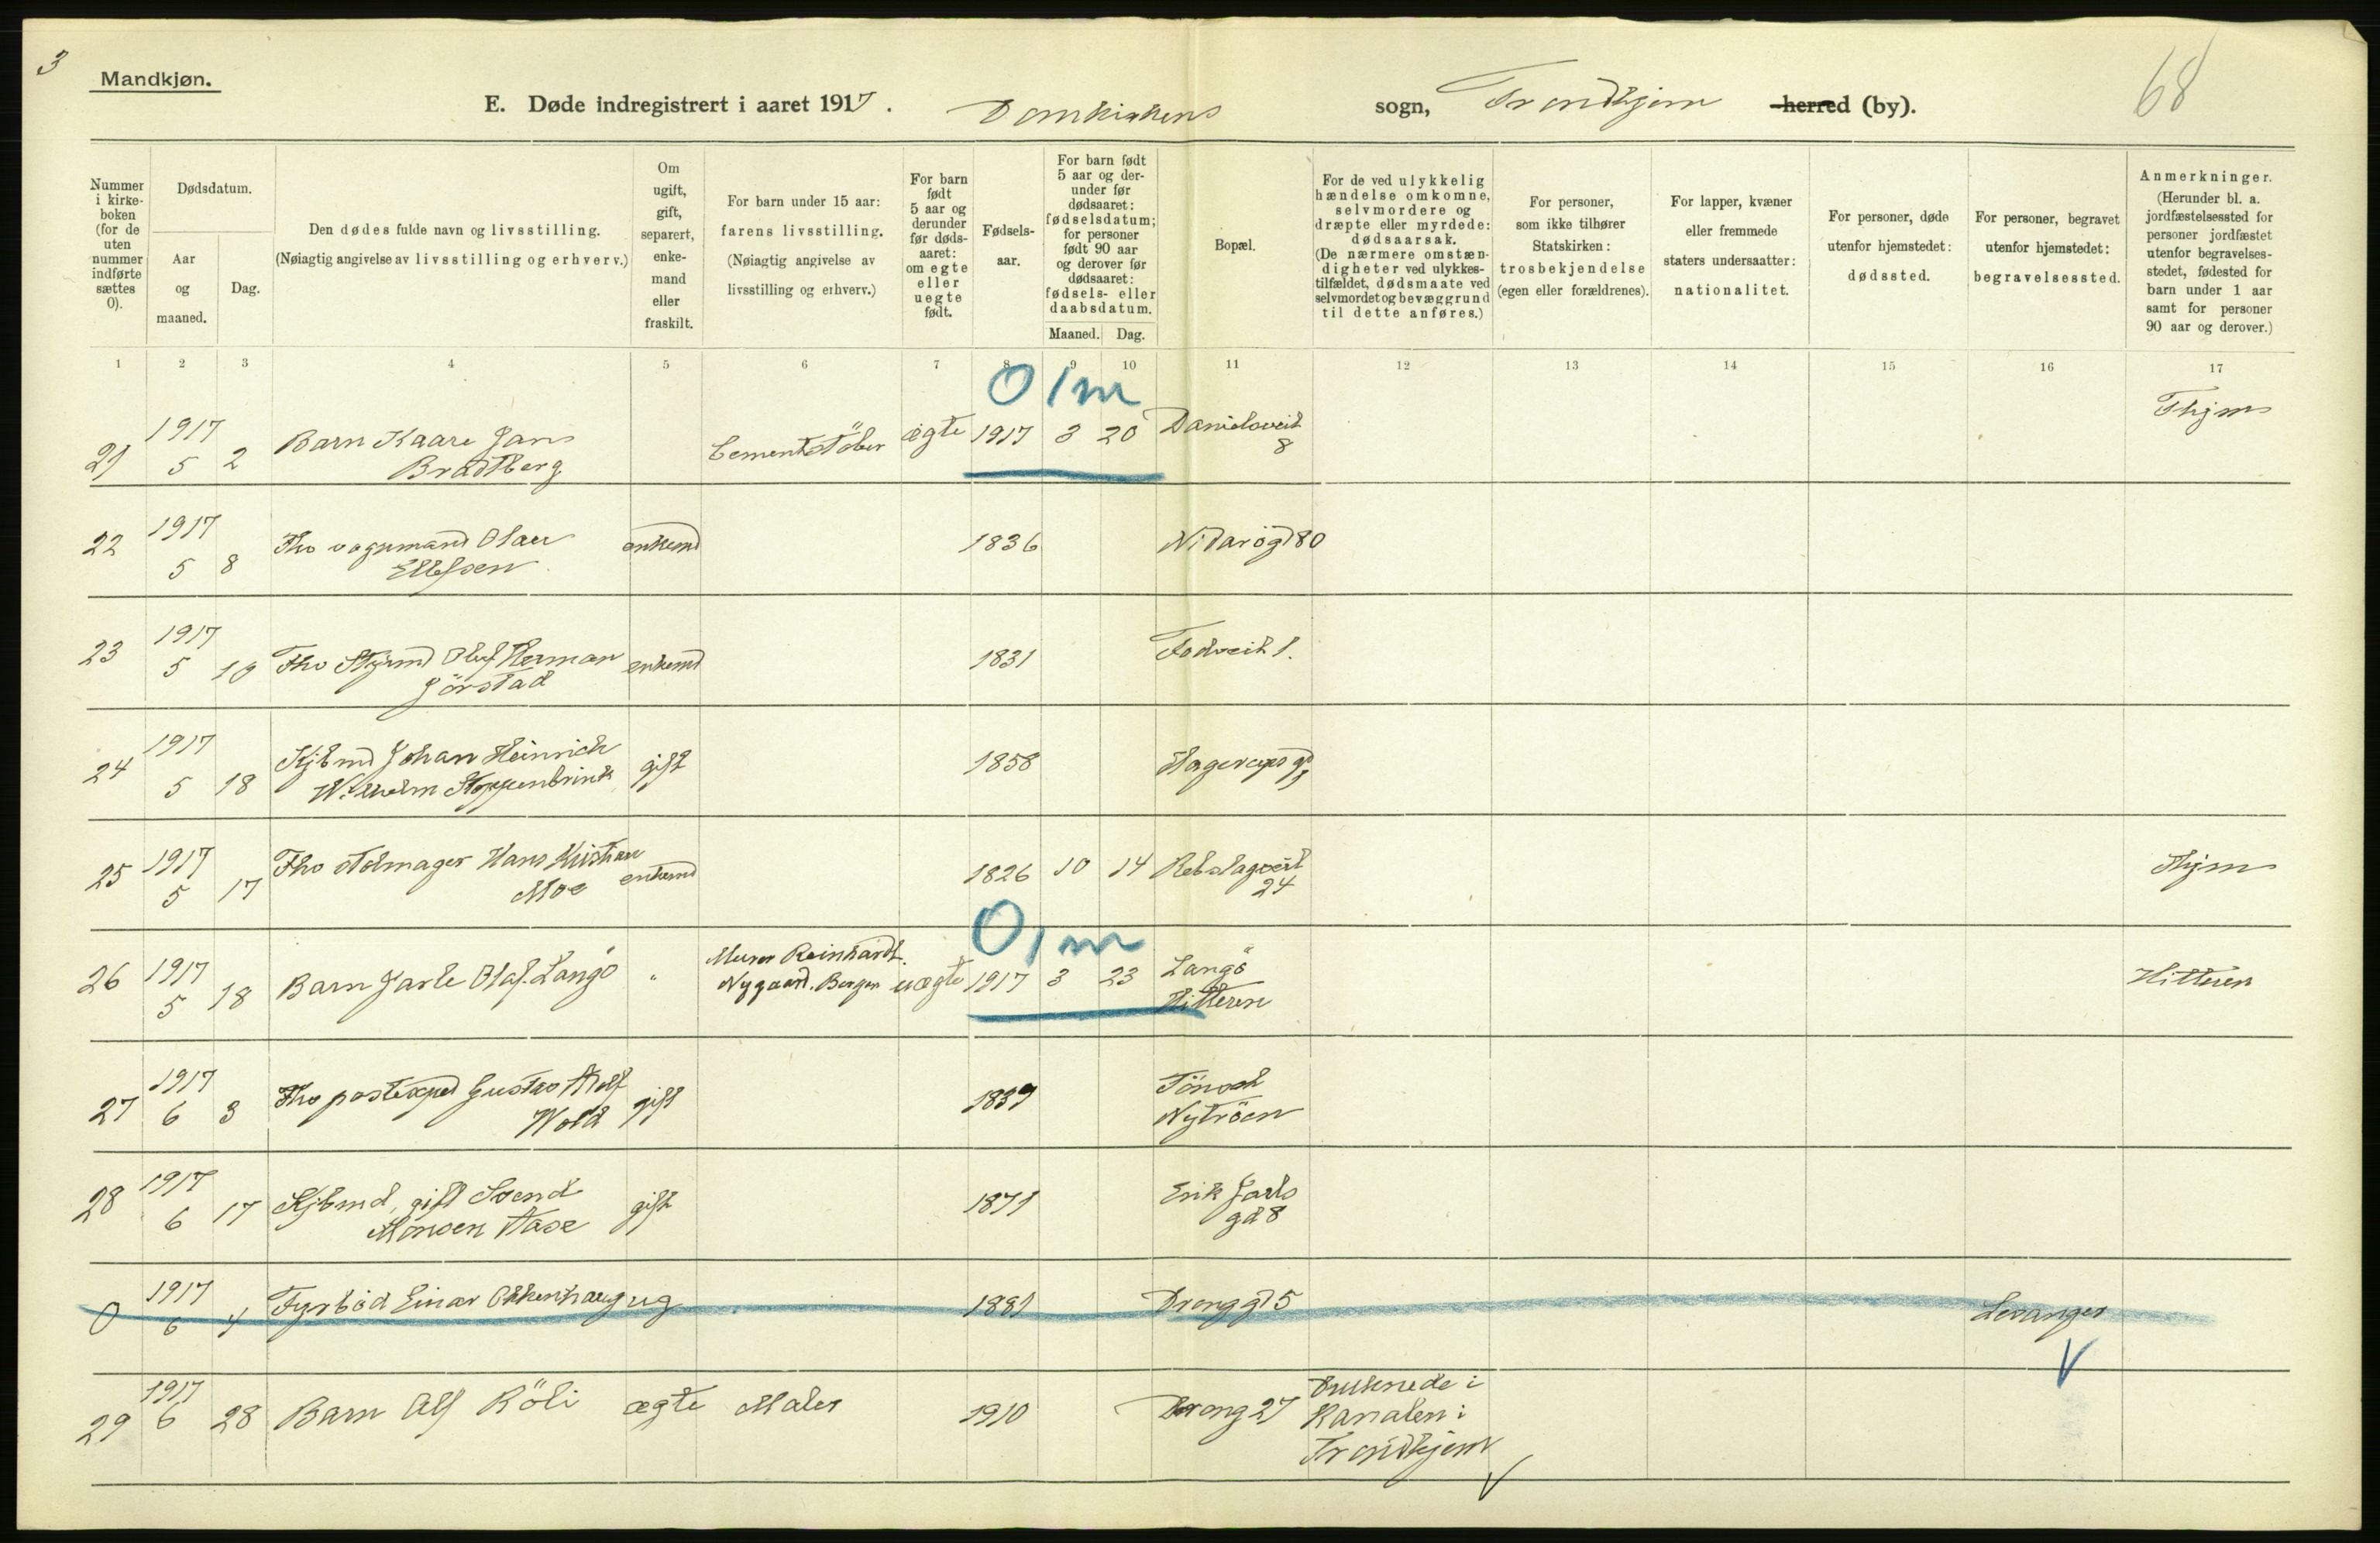 3
Mandkjøn.
68
E. Døde indregistrert i aaret 1917. Domkirkens sogn, Trondhjem herred (by).
Nummer i kirkeboken (for de uten nummer indførte sættes 0).
Dødsdatum.
Aar og maaned.
Dag.
Den dødes fulde navn og livsstilling.
(Nøiagtig angivelse av livsstilling og erhverv.)
Om ugift, gift, separert, enkemand eller fraskilt.
For barn under 15 aar: farens livsstilling.
(Nøiagtig angivelse av livsstilling og erhverv.)
For barn født 5 aar og derunder før dødsaaret: om egte eller uegte født.
Fødselsaar.
For barn født 5 aar og derunder før dødsaaret: fødselsdatum; for personer født 90 aar og derover før dødsaaret: fødsels- eller daabsdatum.
Maaned. Dag.
Bopæl.
For de ved ulykkelig hændelse omkomne, selvmordere og dræpte eller myrdede: dødsaarsak.
(De nærmere omstændigheter ved ulykkestilfældet, dødsmaate ved selvmordet og bevæggrund til dette anføres.)
For personer, som ikke tilhører Statskirken: trosbekjendelse (egen eller forældrenes).
For lapper, kvæner eller fremmede staters undersaatter: nationalitet.
For personer, døde utenfor hjemstedet: dødssted.
For personer, begravet utenfor hjemstedet: begravelsessted.
Anmerkninger.
(Herunder bl. a. jordfæstelsessted for personer jordfæstet utenfor begravelsesstedet, fødested for barn under 1 aar samt for personer 90 aar og derover.)
1 2 3 4 5 6 7 8 9 10 11 12 13 14 15 16 17
0 1 m
21 1917 5 2 Barn Kaare Jans Bradtberg Cementstöber ægte 1917 3 20 Danielsveit 8 Thjm
22 1917 5 8 Fhv vognmand Olaus Ellefsen enkemd 1836 Nidarögt 80
23 1917 5 10 Fhv Styrmd Oluf Herman Jörstad enkemd 1831 Fodveit 1.
24 1917 5 18 Kjbmd Johan Heinrich Wilhelm Stoppenbrink gift 1858
25 1917 5 17 Fhv stolmager Hans Kristian Moe enkemd 1826 10 14 Rebslagveit 24 Thjm
0 1 m
26 1917 5 18 Barn Jarle Olaf. Langö " Murer Reinhardt Nygaard. Bergen uægte 1917 3 23 Langö Hitteren Hitteren
27 1917 6 3 Fhv postexped Gustav Adolf Wold gift 1839 Nytröen
28 1917 6 17 Kjbmd, gift Svend Monsen Aase gift 1871 Erik Jarls gd 8
0 1917 6 4 Fyrböd Einar Okkenhaug ug 1881 Dronggt 5 Levanger
29 1917 6 28 Barn Alf Röli ægte Maler 1910 Drong 27 Druknede i Kanalen i Trondhjem